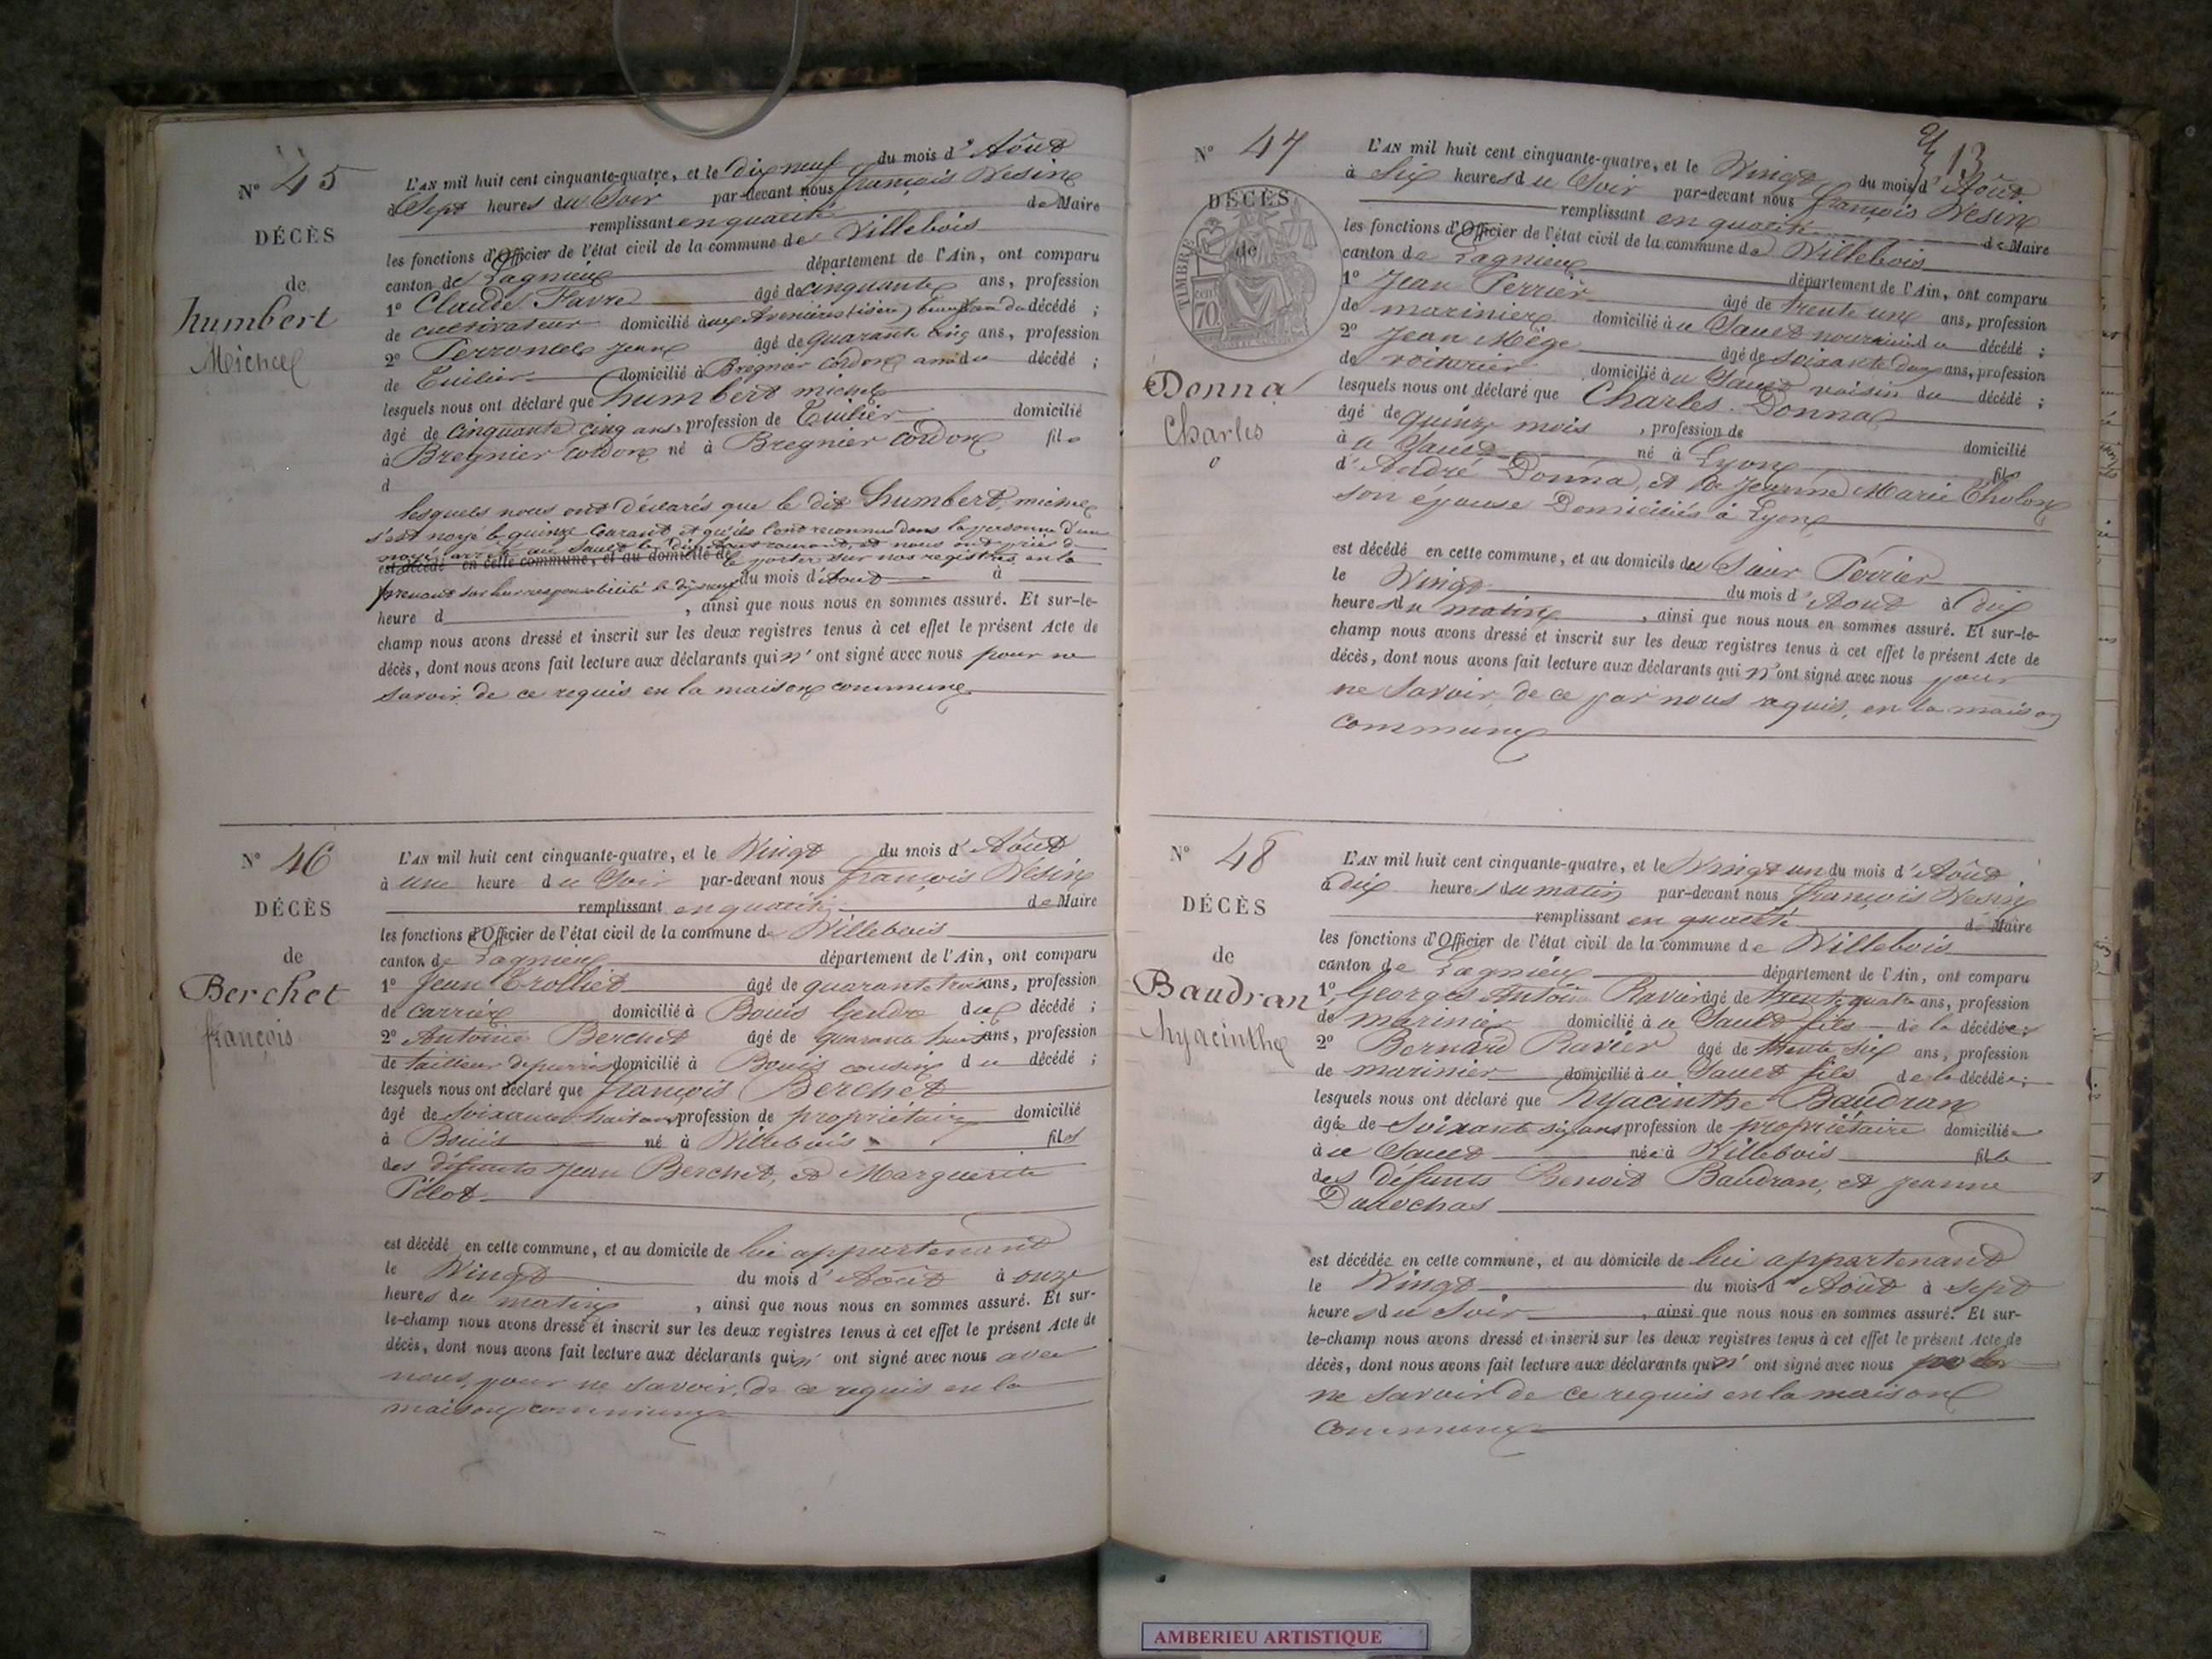 N° 45
DÉCÈS
de
humbert
Michel
L'AN mil huit cent cinquante-quatre, et le dix neuf du mois d'Aôut
à Sept heures du Soir par-devant nous françois Vesin
remplissant en qualité de Maire
les fonctions d'Officier de l'état civil de la commune de Villebois
canton de Lagnieux département de l'Ain, ont comparu
1° Claude Favre âgé de cinquante ans, profession
de cultivateur domicilié aux Avenières (isère) du décédé ;
2° Perroncel Jean âgé de quarante cinq ans, profession
de Tuilier domicilié à Bregnier Cordon ami du décédé ;
lesquels nous ont déclaré que humbert michel
âgé de cinquante cinq ans, profession de Tuilier domicilié
à Bregnier Cordon né à Bregnier Cordon fils
d
lesquels nous ont déclarés que le dit humbert, michel
s'est noyé le quinze Courant, et qu'ils l'ont reconnu dans la personne d'un
noyé arrêté au Sault le dix Aout courant, et nous ont prié de
est décédé en cette commune, et au domicile de le porter sur nos registres, en la
prenant sur leur responsabilité le dix neuf du mois d'Aout à
heure d , ainsi que nous nous en sommes assuré. Et sur-le-
champ nous avons dressé et inscrit sur les deux registres tenus à cet effet le présent Acte de
décès, dont nous avons fait lecture aux déclarants qui n'ont signé avec nous pour ne
savoir de ce requis en la maison commune
N° 46
DÉCÈS
de
Berchet
françois
L'AN mil huit cent cinquante-quatre, et le Vingt du mois d'Aôut
à une heure du Soir par-devant nous françois Vesin
remplissant en qualité de Maire
les fonctions d'Officier de l'état civil de la commune de Villebois
canton de Lagnieux département de l'Ain, ont comparu
1° Jean Trolliet âgé de quarante trois ans, profession
de carrier domicilié à Bouis Gendre du décédé ;
2° Antoine Berchet âgé de quarante huit ans, profession
de tailleur de pierres domicilié à Bouis cousin du décédé ;
lesquels nous ont déclaré que françois Berchet
âgé de soixante huit ans profession de propriétaire domicilié
à Bouis né à Villebois fils
des défunts Jean Berchet, et Marguerite
Pélot
est décédé en cette commune, et au domicile de lui appartenant
le Vingt du mois d'Aôut à onze
heures du matin , ainsi que nous nous en sommes assuré. Et sur-
le-champ nous avons dressé et inscrit sur les deux registres tenus à cet effet le présent Acte de
décès, dont nous avons fait lecture aux déclarants qui n'ont signé avec nous avec
nous, pour ne savoir, de ce requis en la
maison commune
13
N° 47
DÉCÈS
de
TIMBRE
cent
70
Donna
Charles
L'AN mil huit cent cinquante-quatre, et le Vingt du mois d'Aôut
à Six heures du Soir par-devant nous françois Vesin
remplissant en qualité de Maire
les fonctions d'Officier de l'état civil de la commune de Villebois
canton de Lagnieux département de l'Ain, ont comparu
1° Jean Perrier âgé de trente un ans, profession
de marinier domicilié au Sault du décédé ;
2° Jean Mège âgé de soixante deux ans, profession
de voiturier domicilié au Sault voisin du décédé ;
lesquels nous ont déclaré que Charles Donna
âgé de quinze mois , profession de domicilié
à u Sault né à Lyon fils
d'André Donna, et de Jeanne Marie Cholon
son épouse Domiciliés à Lyon
est décédé en cette commune, et au domicile du Sieur Perrier
le Vingt du mois d'Aout à dix
heures du matin , ainsi que nous nous en sommes assuré. Et sur-le-
champ nous avons dressé et inscrit sur les deux registres tenus à cet effet le présent Acte de
décès, dont nous avons fait lecture aux déclarants qui n'ont signé avec nous pour
ne savoir, de ce par nous requis, en la maison
commune
N° 48
DÉCÈS
de
Baudran
hyacinthe
L'AN mil huit cent cinquante-quatre, et le Vingt un du mois d'Aôut
à dix heures du matin par-devant nous françois Vesin
remplissant en qualité de Maire
les fonctions d'Officier de l'état civil de la commune de Villebois
canton de Lagnieux département de l'Ain, ont comparu
1° Georges Antoine Ravier âgé de trente quatre ans, profession
de marinier domicilié au Sault fils de la décédée ;
2° Bernard Ravier âgé de trente six ans, profession
de marinier domicilié au Sault fils de la décédée ;
lesquels nous ont déclaré que hyacinthe Baudran
âgée de soixante six ans profession de propriétaire domiciliée
à u Sault née à Villebois fille
des défunts Benoit Baudran, et Jeanne
est décédée en cette commune, et au domicile de lui appartenant
le Vingt du mois d'Aôut à sept
heures du Soir , ainsi que nous nous en sommes assuré. Et sur-
le-champ nous avons dressé et inscrit sur les deux registres tenus à cet effet le présent Acte de
décès, dont nous avons fait lecture aux déclarants qui n'ont signé avec nous pour
ne savoir de ce requis en la maison
commune
AMBERIEU ARTISTIQUE